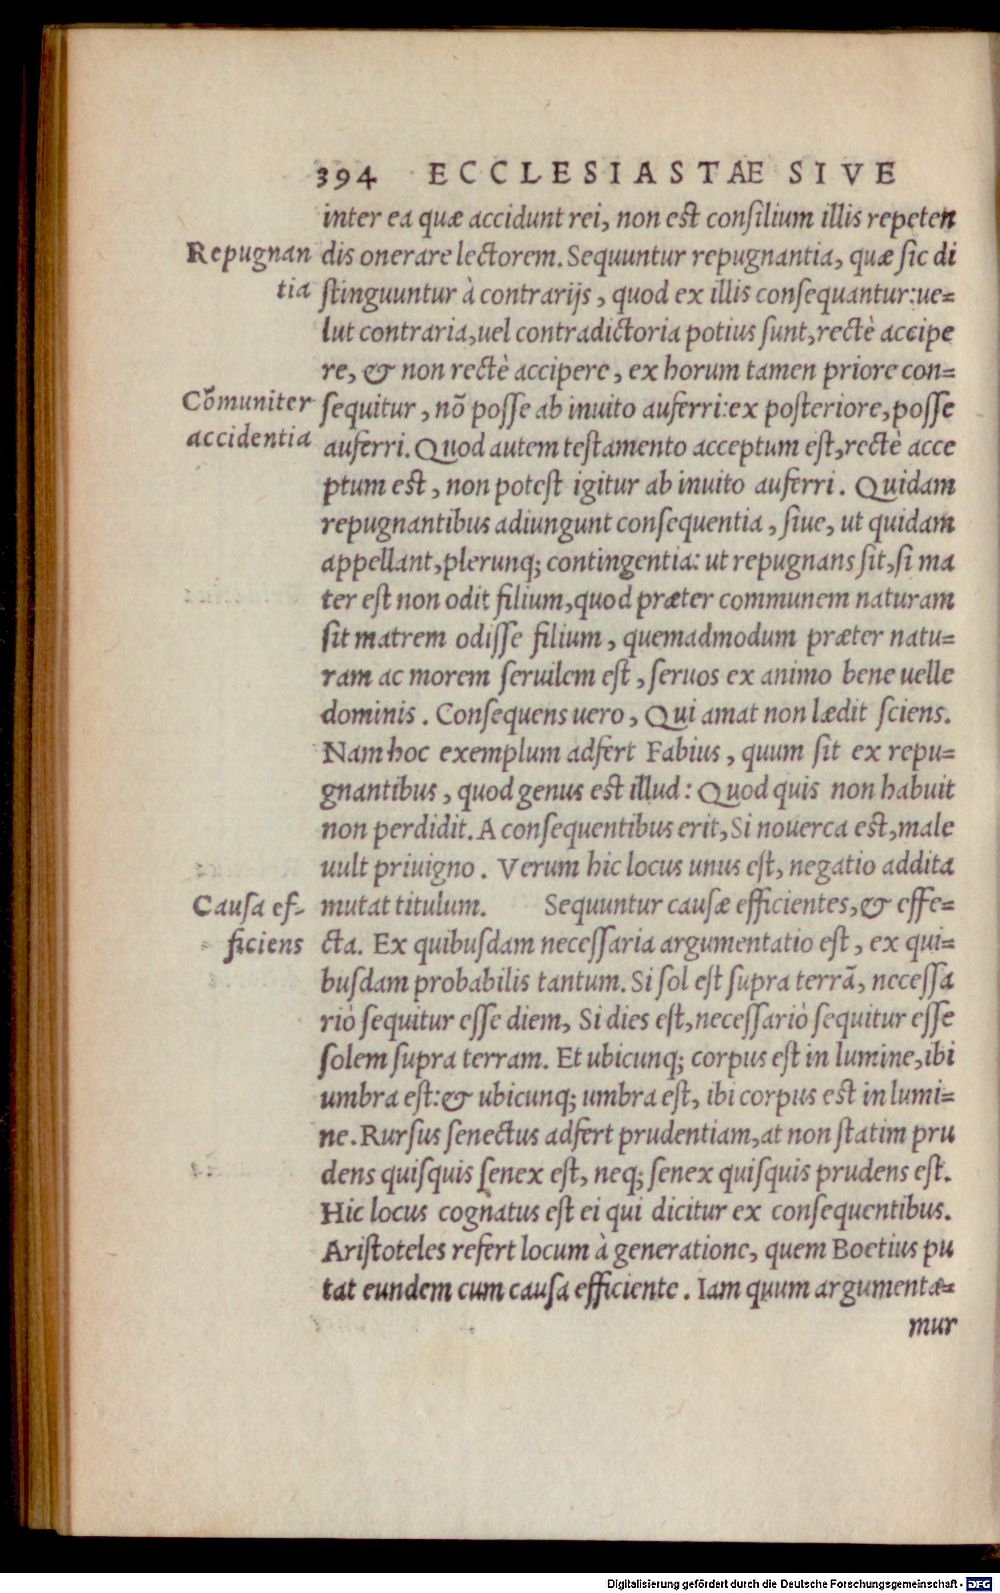 394 ECCLESIASTAE SIVE
inter ea quæ accidunt rei, non est consilium illis repeten
Repugnan dis onerare lectorem. Sequuntur repugnantia, quæ sic di
tia stinguuntur à contrarijs, quod ex illis consequantur: ue=
lut contraria, uel contradictoria potius sunt, rectè accipe
re, & non rectè accipere, ex horum tamen priore con=
Cōmuniter sequitur, nō posse ab inuito auferri: ex posteriore, posse
accidentia auferri. Quod autem testamento acceptum est, rectè acce
ptum est, non potest igitur ab inuito auferri. Quidam
repugnantibus adiungunt consequentia, siue, ut quidam
appellant, plerunq; contingentia: ut repugnans sit, si ma
ter est non odit filium, quod præter communem naturam
sit matrem odisse filium, quemadmodum præter natu=
ram ac morem seruilem est, seruos ex animo bene uelle
dominis. Consequens uero, Qui amat non lædit sciens.
Nam hoc exemplum adfert Fabius, quum sit ex repu=
gnantibus, quod genus est illud: Quod quis non habuit
non perdidit. A consequentibus erit, Si nouerca est, male
uult priuigno. Verum hic locus unus est, negatio addita
Causa ef- mutat titulum. Sequuntur causæ efficientes, & effe=
ficiens cta. Ex quibusdam necessaria argumentatio est, ex qui=
busdam probabilis tantum. Si sol est supra terrā, necessa
riò sequitur esse diem, Si dies est, necessariò sequitur esse
solem supra terram. Et ubicunq; corpus est in lumine, ibi
umbra est: & ubicunq; umbra est, ibi corpus est in lumi=
ne. Rursus senectus adfert prudentiam, at non statim pru
dens quisquis senex est, neq; senex quisquis prudens est.
Hic locus cognatus est ei qui dicitur ex consequentibus.
Aristoteles refert locum à generatione, quem Boetius pu
tat eundem cum causa efficiente. Iam quum argumenta=
mur
Digitalisierung gefördert durch die Deutsche Forschungsgemeinschaft - DFG